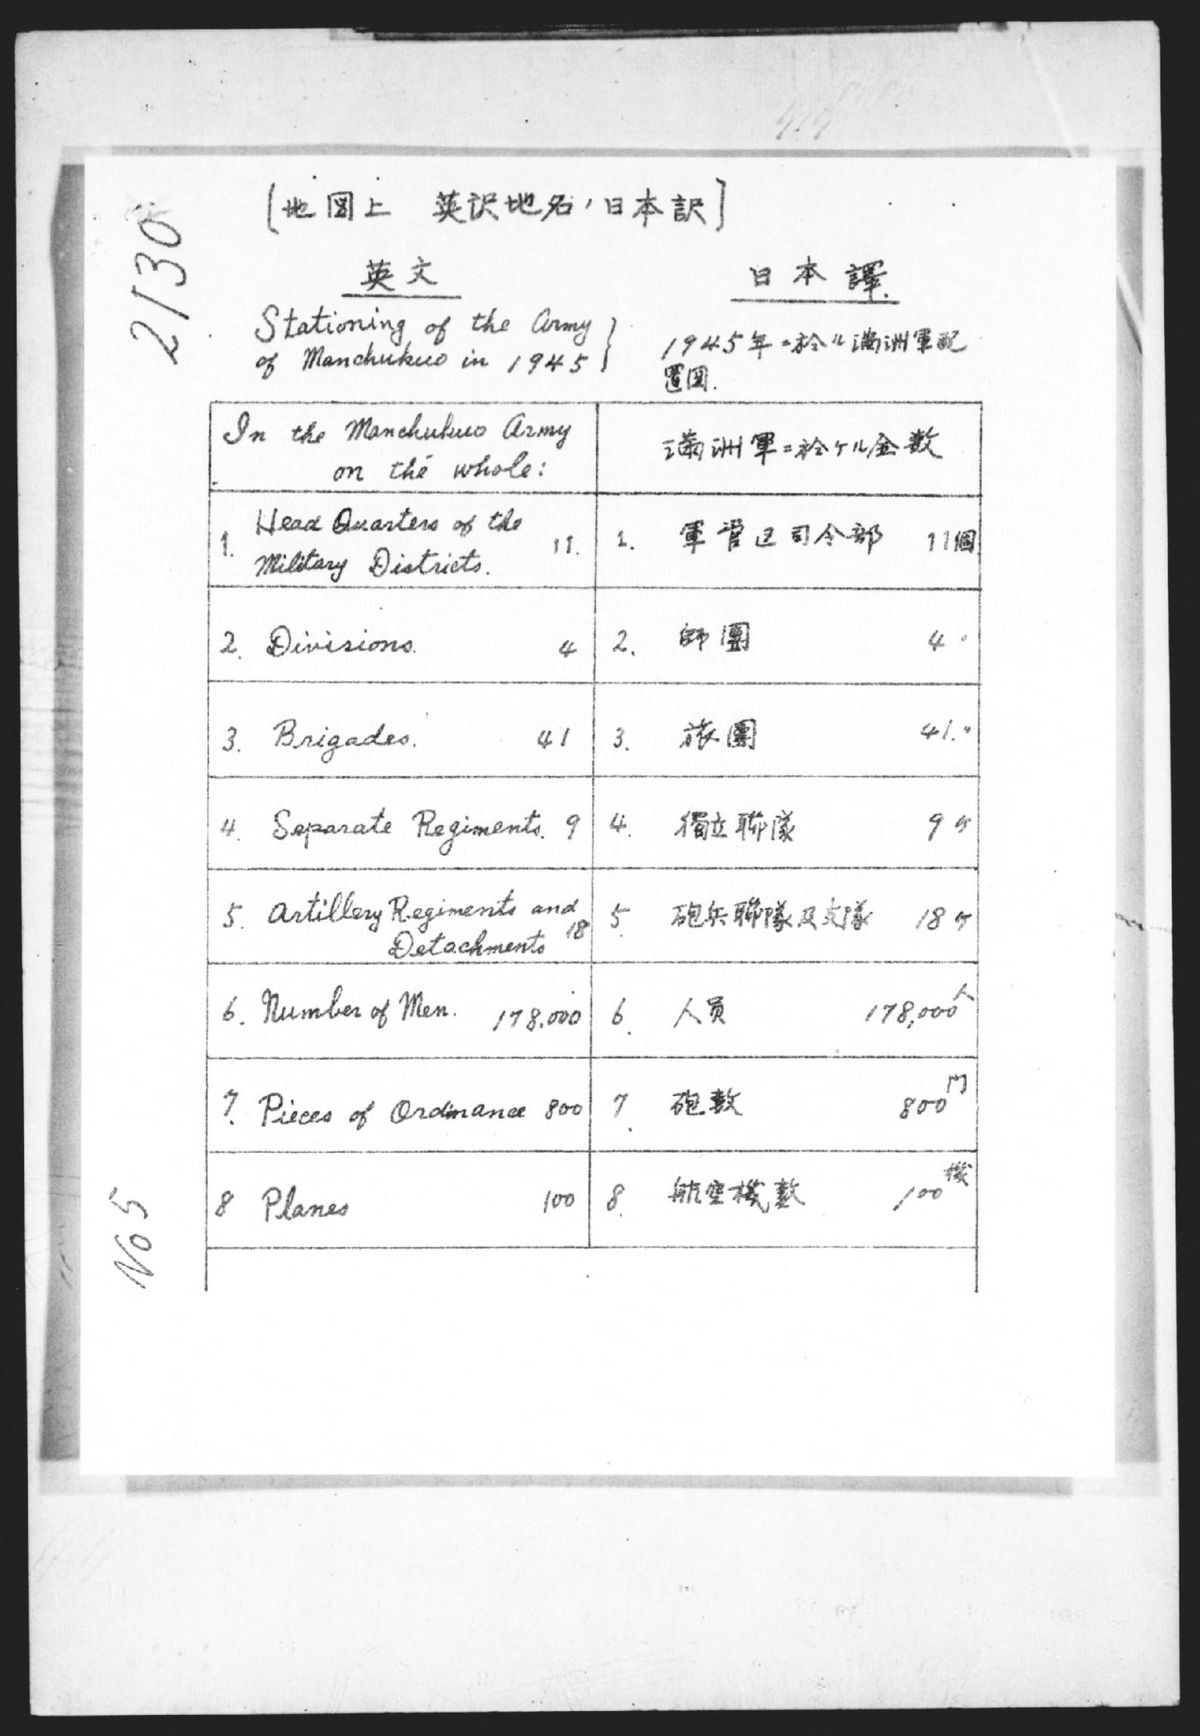 2130
[地図上 英訳地名ノ日本訳]
英文
日本譯.
Stationing of the Army
of Manchukuo in 1945 }
1945年ニ於ル満洲軍配
置図.
In the Manchukuo Army
on the whole:
満洲軍ニ於ケル全数
1. Head Quarters of the
Military Districts. 11.
1. 軍管区司令部 11個
2. Divisions. 4
2. 師團 4 〃
3. Brigades. 41
3. 旅團 41. 〃
4. Separate Regiments. 9
4. 獨立聯隊 9ケ
5. Artillery Regiments and
Detachments 18
5. 砲兵聯隊及支隊 18ケ
6. Number of Men. 178,000
6. 人員 178,000人
7. Pieces of Ordinance 800
7. 砲数 800門
8 Planes 100
8. 航空機数 100機
No 5